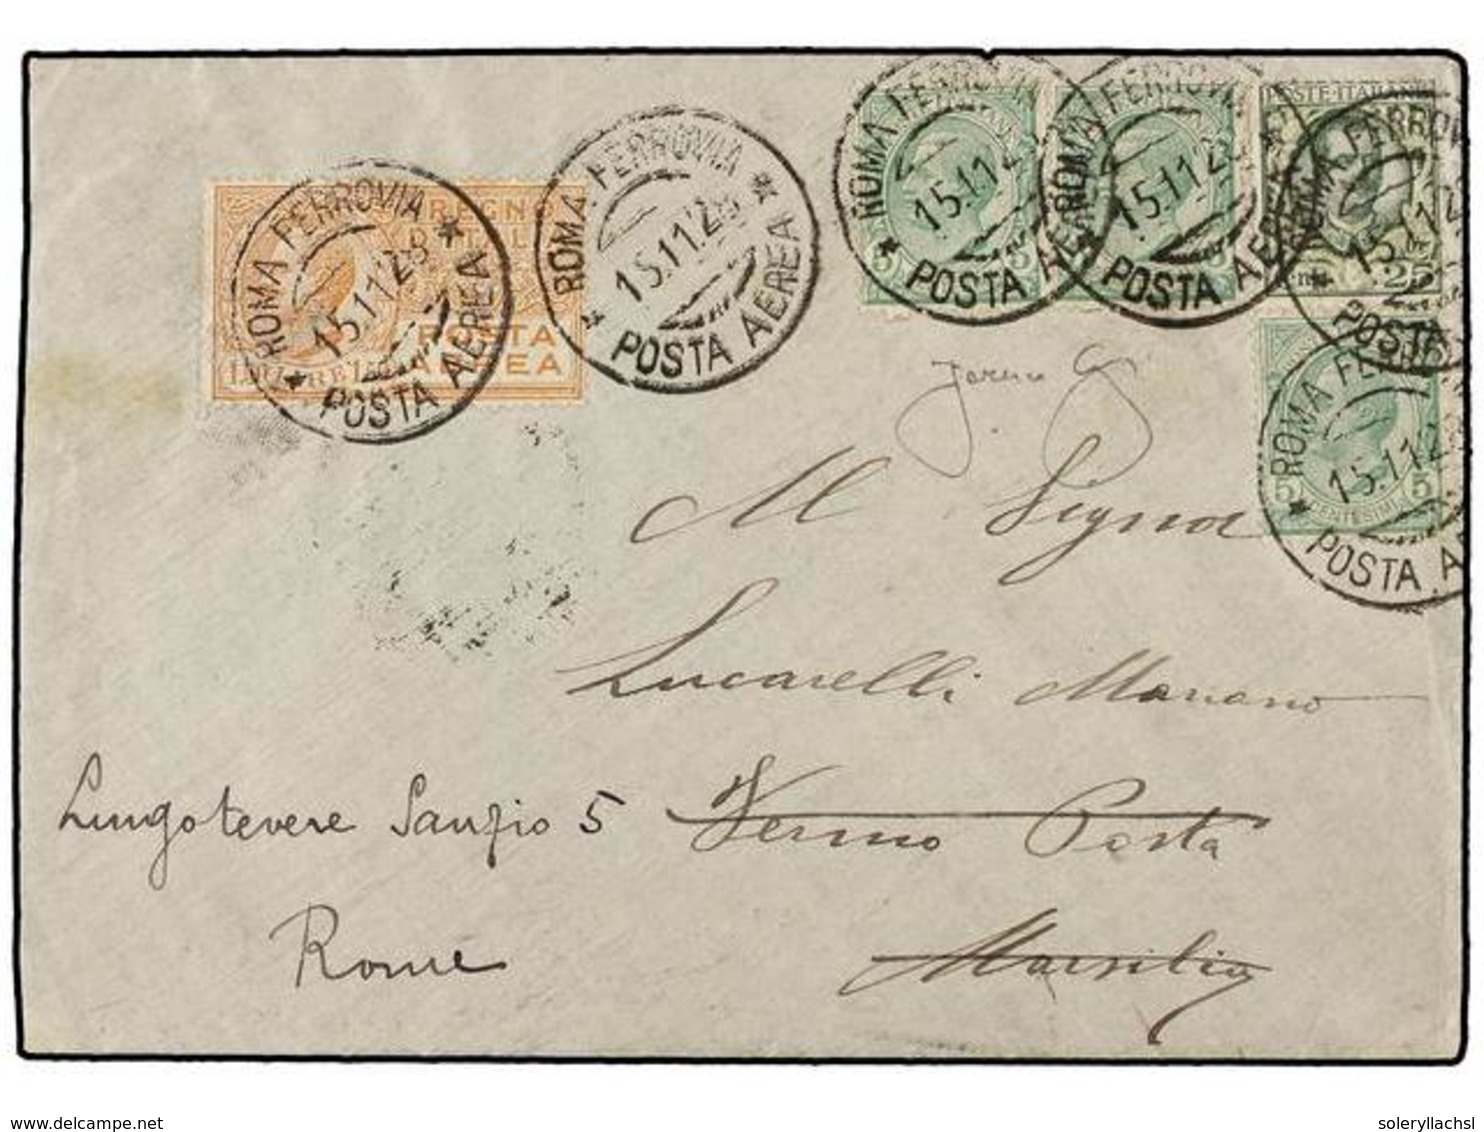 ROMA FERROVIA * POSTA AEREA *
15.11.28
REGNO
POSTA
AEREA
ROMA FERROVIA * POSTA AEREA *
15.11.28
ROMA FERROVIA * POSTA AEREA
15.11.2
5 5
ROMA FERROVIA POSTA AEREA
15.11.2
POSTE·ITALIANE
25
ROMA FERROV
15.11.2
POSTA
ROMA FE
15.11.2
POSTA A
5 CENTESIMI 5
Al Signor
Lucarelli Mariano
Lungotevere Sanzio 5 Fermo Posta
Rome Marsilia
soleryllachsl